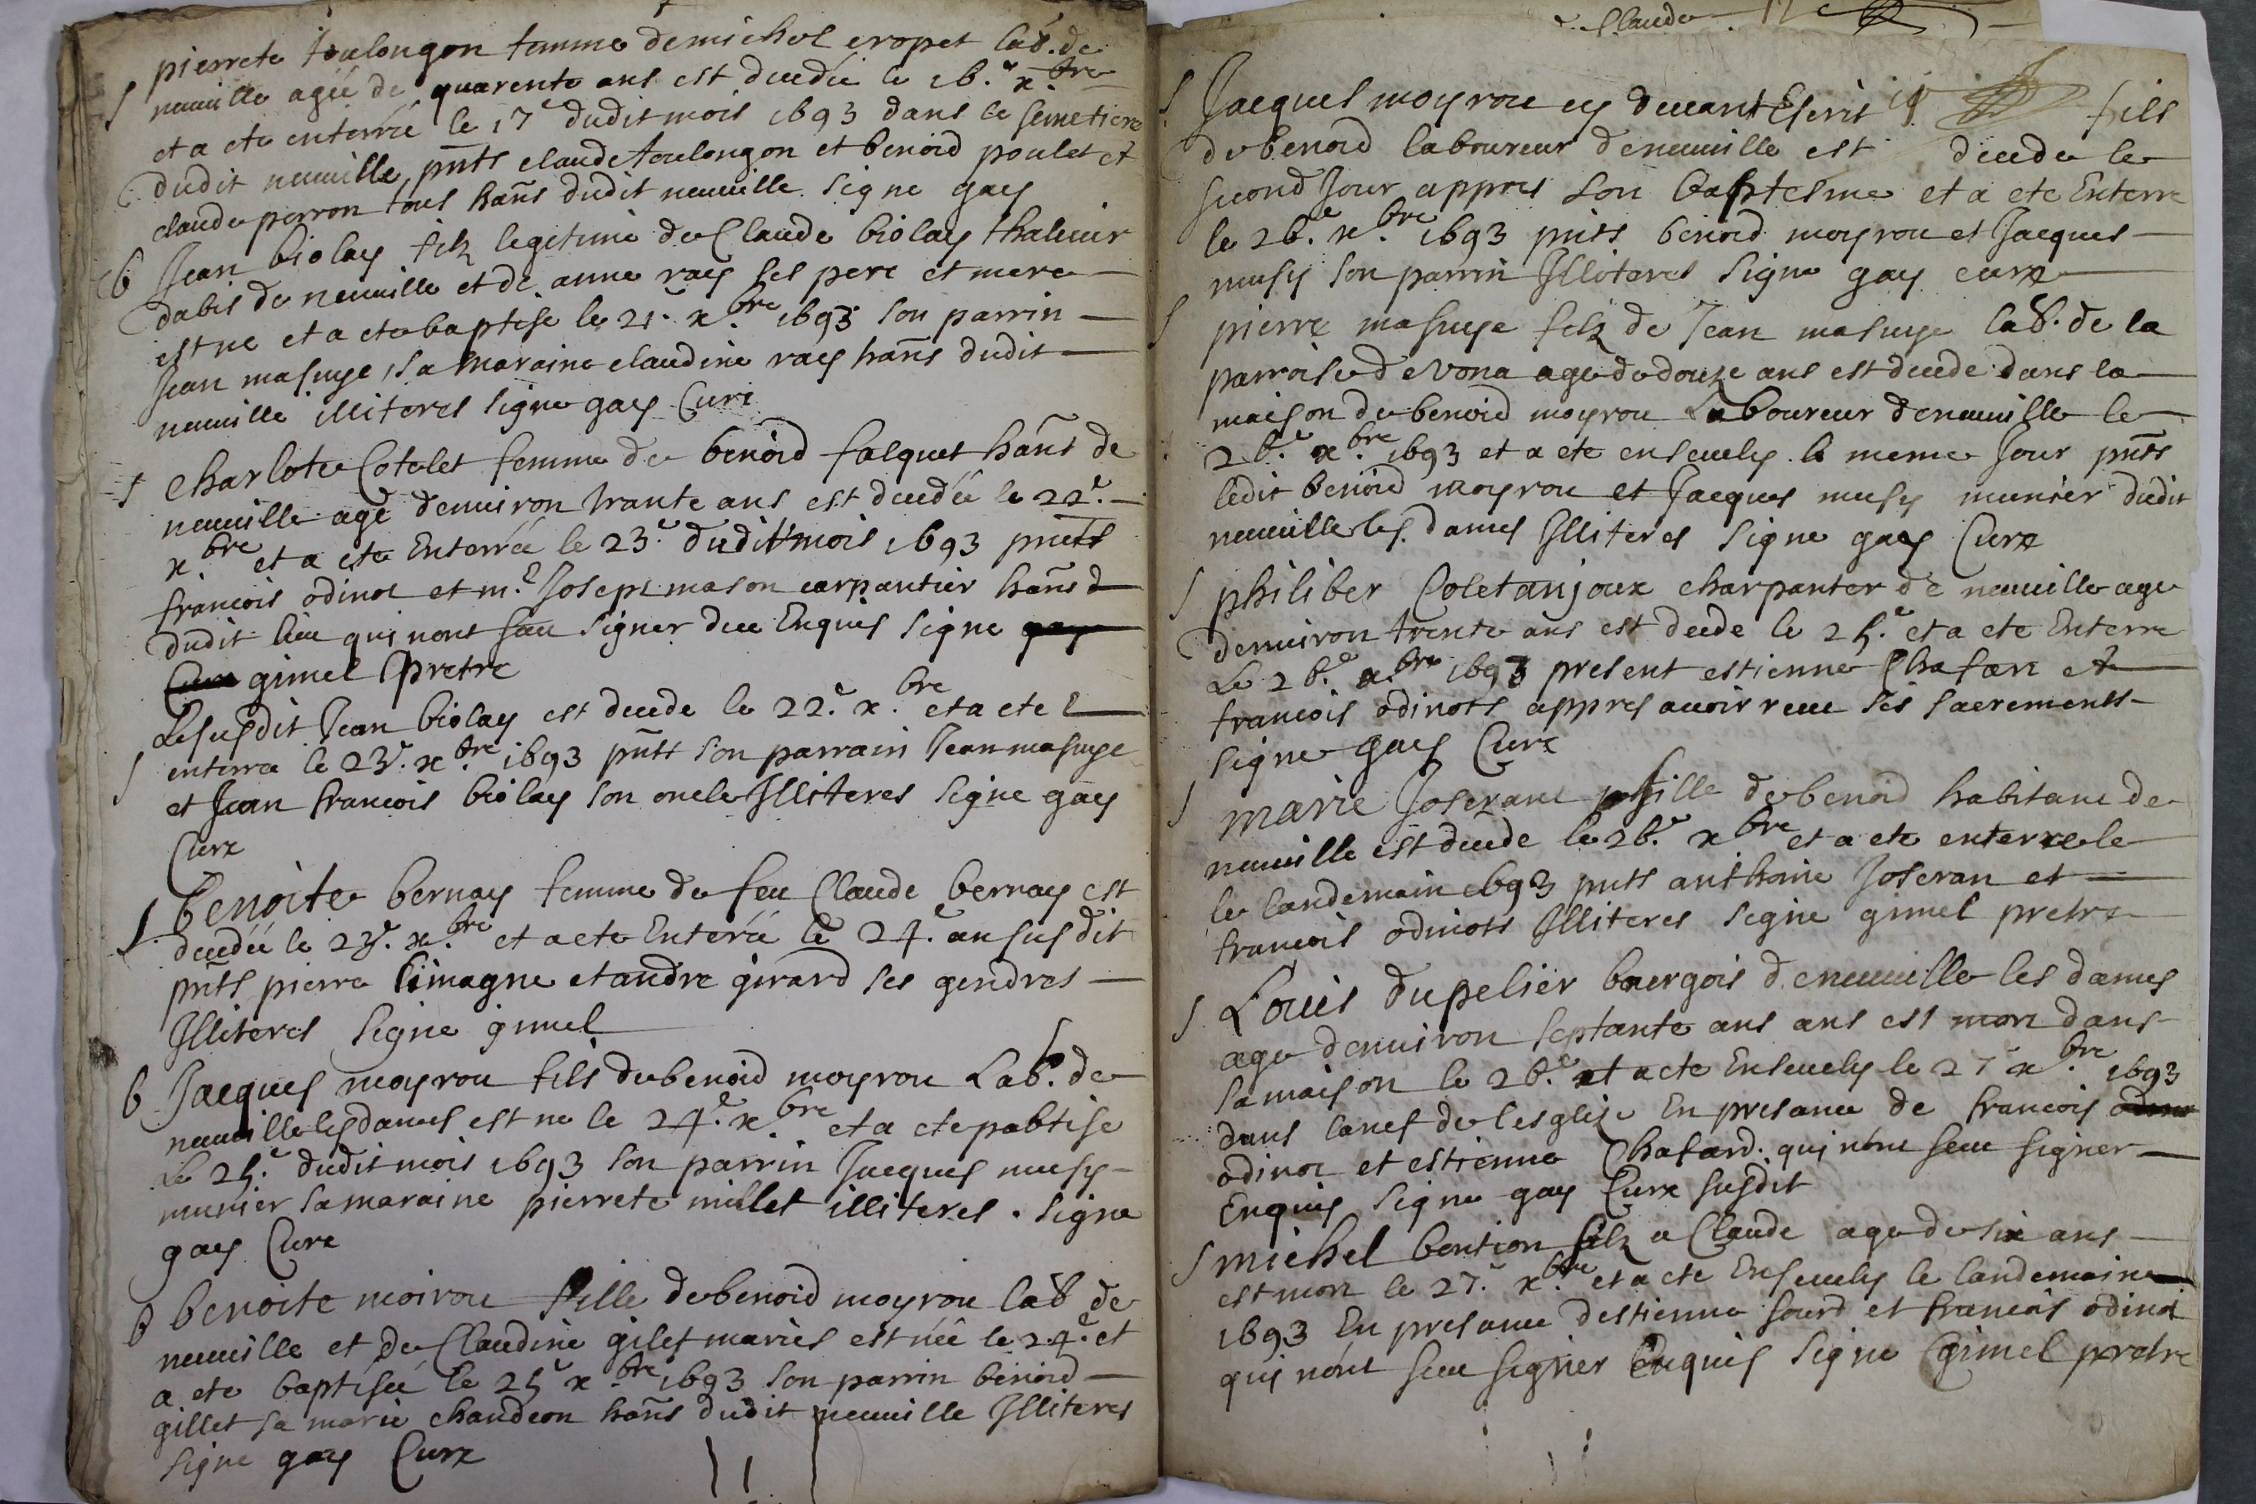 pierrete toulongon femme de michel eropet lab. de
S neuuille agée de quarente ans est decedée le 16.e x.bre
et a ete enterrée le 17e dudit mois 1693 dans le semetiere
dudit neuuille pnts claude toulongon et benoid poulet et
claude perron tous hans dudit neuuille signe gay
b Jean biolay filz legitime de Claude biolay
de neuuille et de anne ray ses pere et mere
est ne et a ete baptise le 21. x.bre 1693 son parrin
Jean masuye, sa maraine claudine ray hans dudit
neuuille illiteres signe gay Cure
S charlote Cotelet femme de benoid falquet hans de
neuuille agé denuiron trante ans est decedée le 22e.
xbre et a ete Enterrée le 23.e dudit mois 1693 pnts
francois odinot et m.e Joseph mason carpantier hans d
dudit lieu qui nont sceu signer dee Enquis signe gay
Cure gimel pretre
Lesusdit Jean biolay est decede le 22.e x.bre et a ete
S enterre le 23e. x.bre 1693 pntt son parrain Jean masuye
et Jean francois biolay son oncle Illiteres signe gay
Cure
S benoite bernay femme de feu Claude bernay est
decedée le 23e. x.bre et a ete Enteréé le 24.e an susdit
pnts pierre limagne et andre girard ses gendres
Illiteres signe gimel
b Jacques moyrou fils de benoid moyrou Lab. de
neuuille les dames est ne le 24.e x.bre et a ete pabtise
Le 25.e dudit mois 1693 son parrin Jacques musy
munier sa maraine pierrete millet illiteres. signe
gay Cure
b benoite moirou fille de benoid moyrou lab de
neuuille et de Claudine gilet maries est née le 24.e et
a ete baptisée le 25e x.bre 1693 son parrin benoid
gillet sa marie chandeon hans dudit neuuille Illiteres
signe gay Cure
Claude
S Jacques moyrou cy deuant Escrit fils
de benoid laboureur de neuuille est decede le
second Jour appres son baptesme et a ete Enterre
le 26.e x.bre 1693 pnts benoid moyrou et Jacques
musy son parrin Illiteres signe gay cure
S pierre masuye filz de Jean masuye lab. de la
parroise de vona age de douze ans est decede dans la
maison de benoid moyrou Laboureur de neuuille le
26.e x.bre 1693 et a ete enseuely le meme Jour pnts
ledit benoid moyrou et Jacques musy munier dudit
neuuille les dames Illiteres signe gay Cure
S philiber Coletanjoux charpanter de neuuille age
denuiron trente ans est decede le 25.e et a ete Enterre
Le 26.e x.bre 1693 present estienne Chafare et
francois odinots appres auoir receu ses sacrements
signe gay Cure
S marie Joserant fille de benoid habitant de
neuuille est decede le 26.e xbre et a ete enterre le
le landemain 1693 pnts anthoine Joseran et
francois odinots Illiteres signe gimel pretre
S Louis dupelier bourgois de neuuille les dames
age denuiron septante ans ans est mort dans
sa maison le 26.e et a ete Enseuely le 27e x.bre 1693
dans la nef de lesglize En presance de francois odinot
odinot et estienne Chafard. qui nont sceu signer
Enquis signe gay Cure susdit
S michel bontion filz a Claude age de six ans
est mort le 27.e x.bre et a ete Enseuely le landemain
1693 En presance destienne sourd et francois odinot
qui nont sceu signer Enquis signe gimel pretre